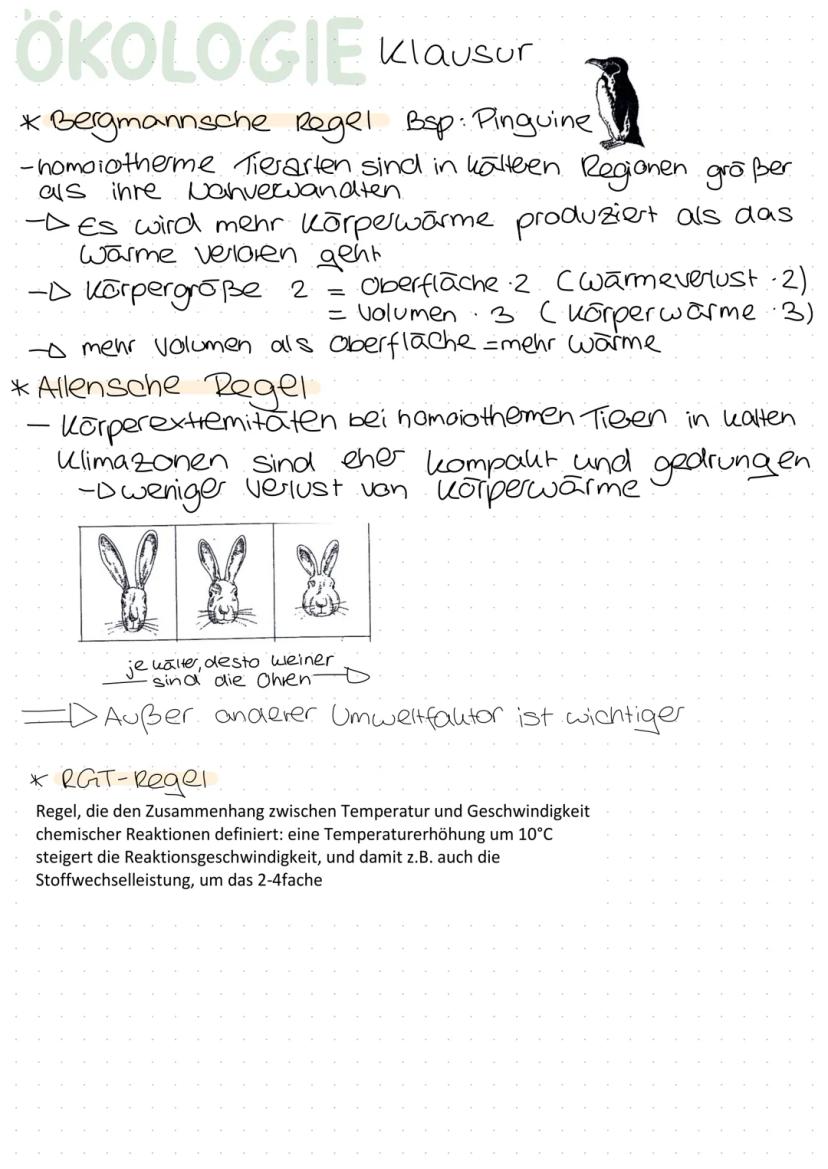 ÖKOLOGIE Klausur
* Bergmannsche Regel Bsp: Pinguine
- homoiotherme Tierarten sind in kälteren Regionen größer
als ihre Nahverwandten
-▷ Es wird mehr Körperwärme produziert als das
Wärme verloren geht
-▷ Körpergröße 2 = Oberfläche · 2 (Wärmeverlust · 2)
= Volumen · 3 (Körperwärme · 3)
-▷ mehr Volumen als Oberfläche = mehr Wärme
* Allensche Regel
- Körperextremitäten bei homoiothermen Tieren in kalten
Klimazonen sind eher kompakt und gedrungen
-▷ weniger Verlust von Körperwärme
je kälter, desto kleiner
sind die Ohren
=▷ Außer anderer Umweltfaktor ist wichtiger
* RGT-Regel
Regel, die den Zusammenhang zwischen Temperatur und Geschwindigkeit
chemischer Reaktionen definiert: eine Temperaturerhöhung um 10°C
steigert die Reaktionsgeschwindigkeit, und damit z.B. auch die
Stoffwechselleistung, um das 2-4fache